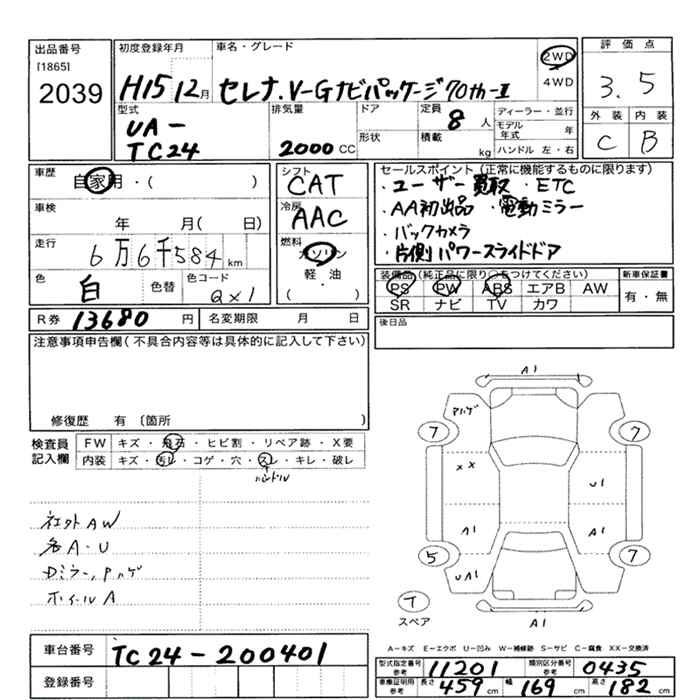 出品番号
[1865]
2039
初度登録年月
H15 12月
車名・グレード
セレナ.V-Gナビパッケージ70th-II
2WD
4WD
評価点
3.5
外装 内装
C B
型式
UA-
TC24
排気量
2000 CC
ドア
形状
定員
8人
積載
kg
ディーラー・並行
モデル年式 年
ハンドル 左・右
車歴
自家用・( )
車検
年 月( 日)
走行
6万6千584km
色
白
色替
色コード
QX1
シフト
CAT
冷房
AAC
燃料
ガソリン
軽・油
( )
セールスポイント(正常に機能するものに限ります)
・ユーザー買取 ・ETC
・AA初出品 ・電動ミラー
・バックカメラ
・片側パワースライドドア
装備品(純正品に限り○をつけてください)
PS PW ABS エアB AW
SR ナビ TV カワ
新車保証書
有・無
R券 13680円
名変期限 月 日
後日品
注意事項申告欄(不具合内容等は具体的に記入して下さい)
修復歴 有〔箇所 〕
検査員
記入欄
FW キズ・飛石・ヒビ割・リペア跡・X要
内装 キズ・汚レ・コゲ・穴・スレ・キレ・破レ
ハンドル
社外AW
各A・U
Dミラー,Pハゲ
ホイールA
A1
Aハゲ
7
7
XX
U1
A1
A1
5
7
UA1
A1
T
スペア
A1
A-キズ E-エクボ U-凹み W-補修跡 S-サビ C-腐食 XX-交換済
車台番号
TC24-200401
登録番号
型式指定番号参考
11201
類別区分番号参考
0435
車庫証明用参考
長さ 459cm
幅 169cm
高さ 182cm